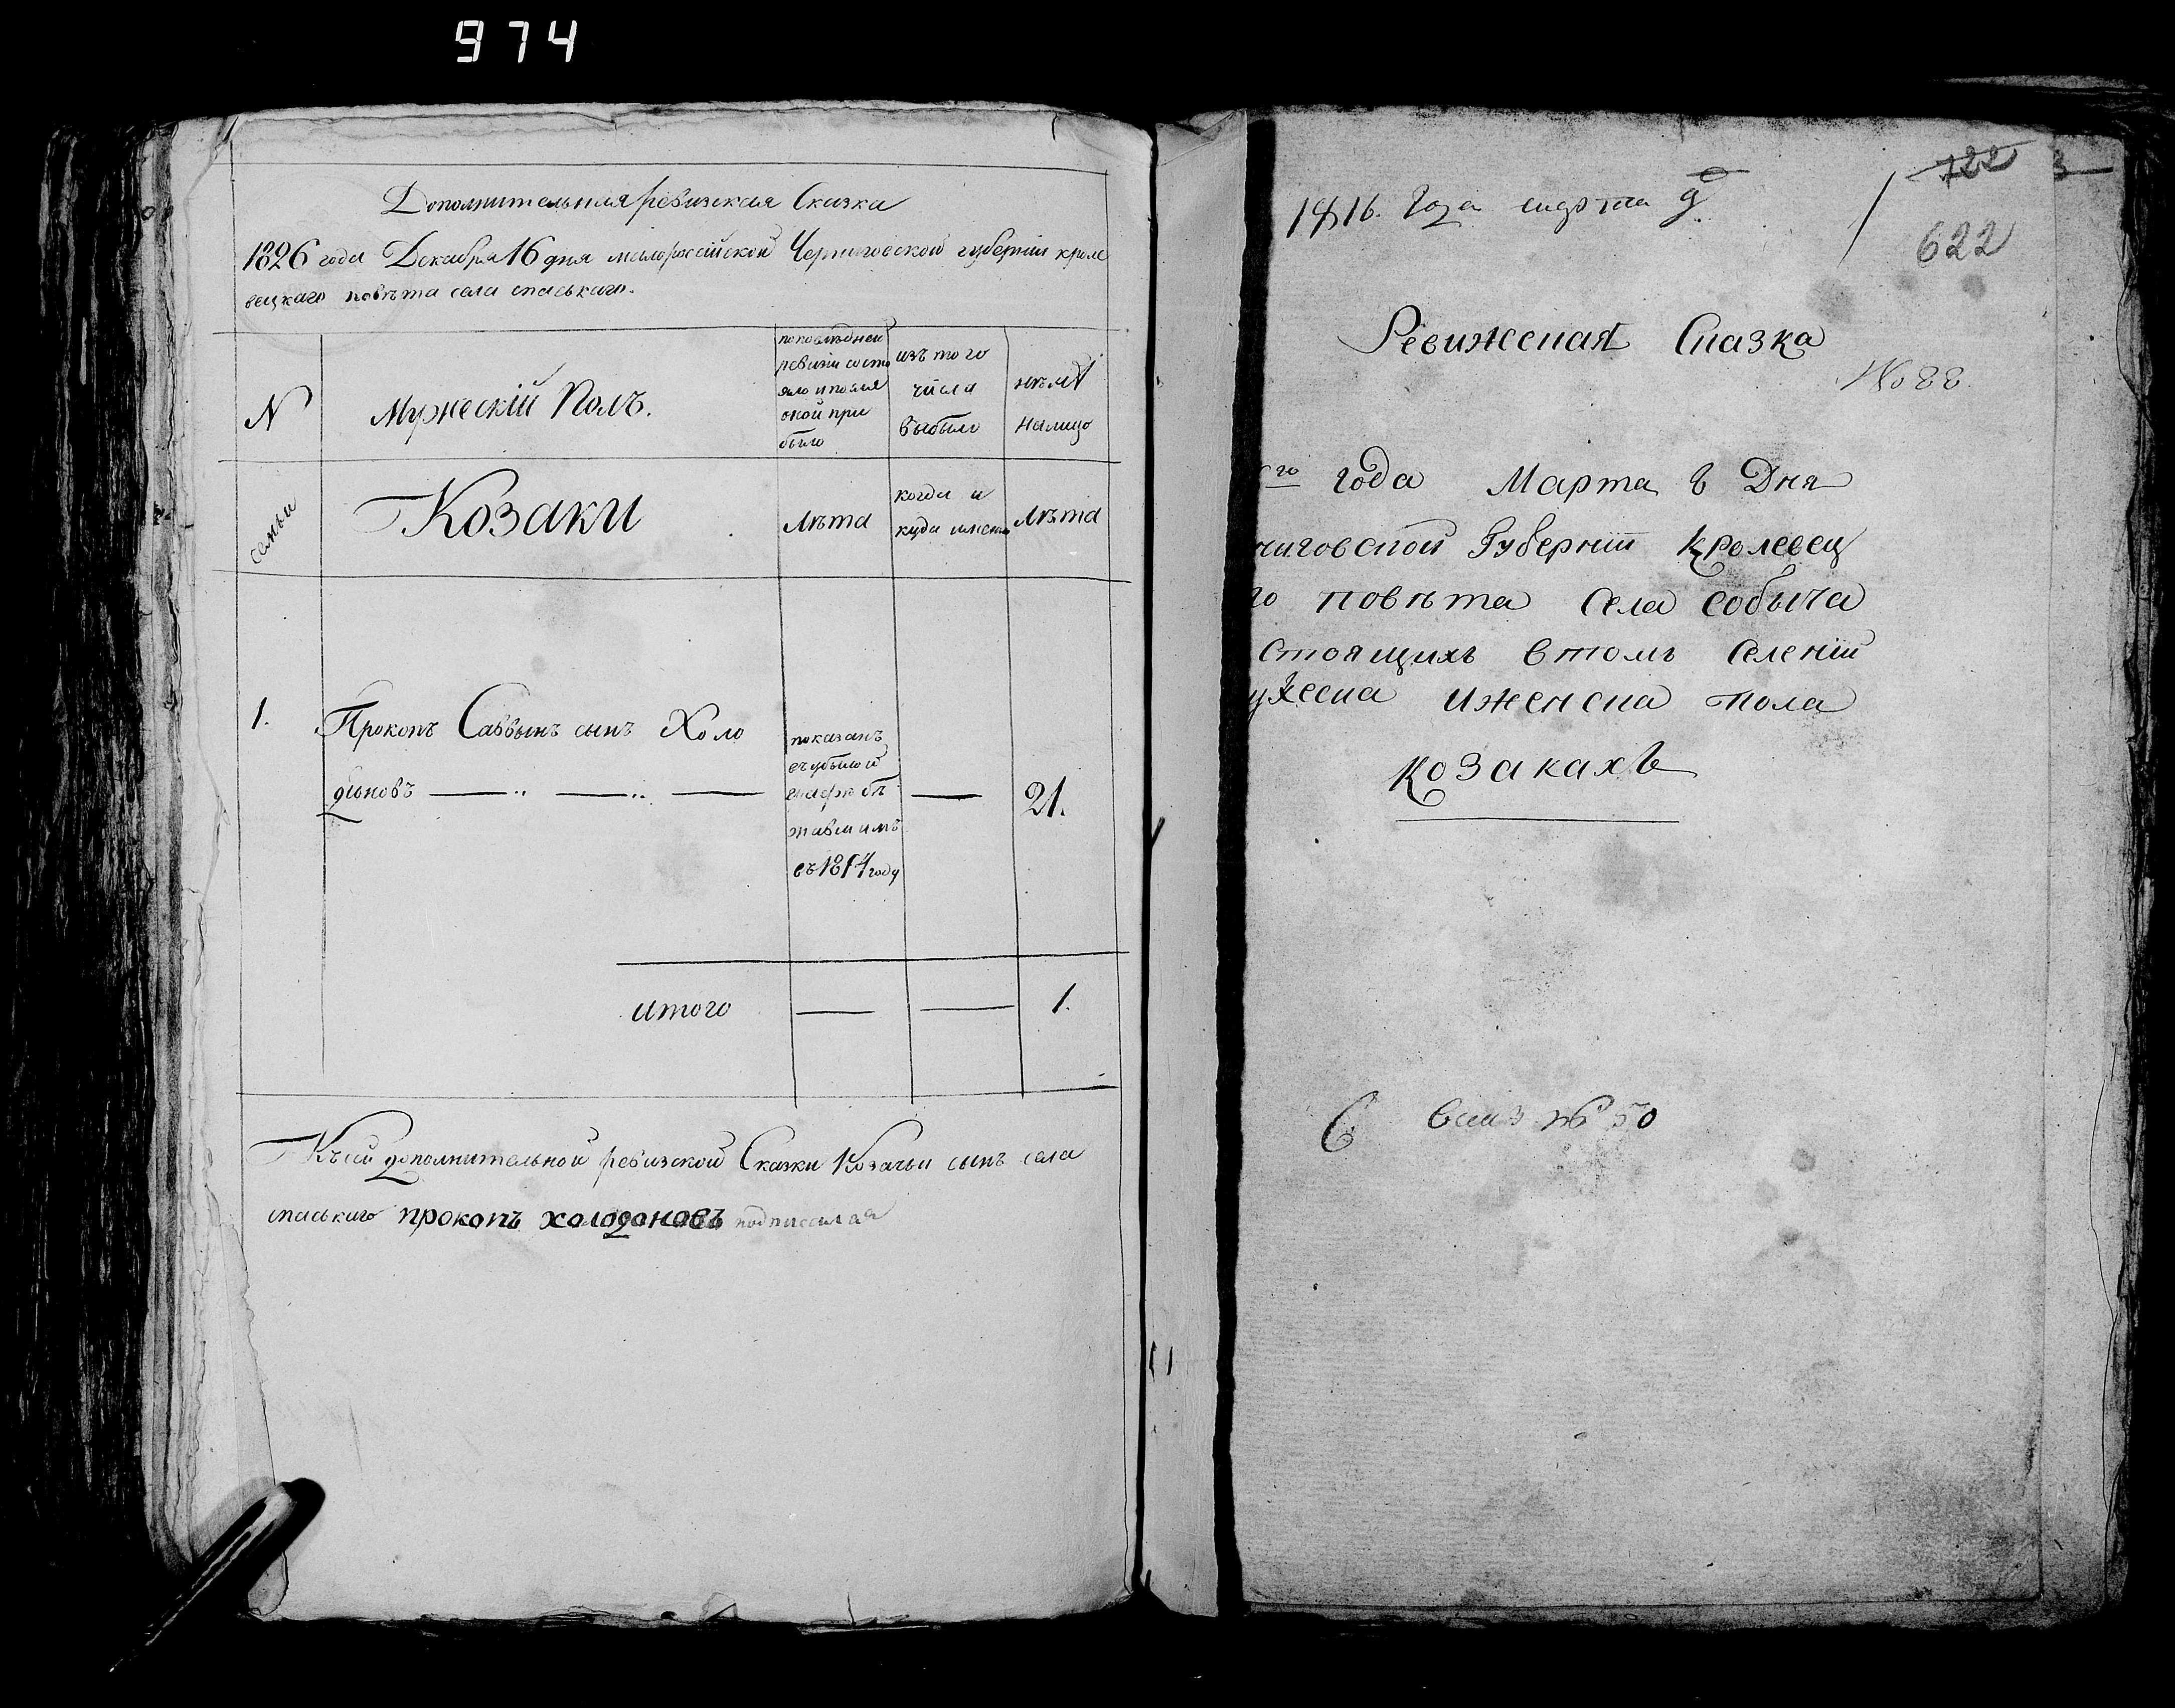 974
Дополнительная ревизская Сказка
1826 года Декабря 16 дня малороссійской Черниговской губерніи кроле
вецкаго повѣта села спаськаго.
N
семьи
Мужескій Полъ.
Козаки
по последней
ревизіи состо
яло и после
оной при
было
Лѣта
изъ того
числа
выбыло
когда и
куда имена
ныне
налицо
Лѣта
1.
Прокопъ Саввынъ сынъ Холо
доновъ
показанъ
въ 1814 году
21.
итого
1.
Къ сей дополнительной ревизской Сказки Козачьи сынъ села
спаськаго прокопъ холодоновъ подписался
1816. Года марта 9
722
3
622
Ревижсная Сказка
No 88
го года Марта 8 Дня
ниговской Губерніи Кролевец
го повѣта села собыча
стоящихъ втомъ селеніи
ужеска иженска пола
козакахъ
№ 50